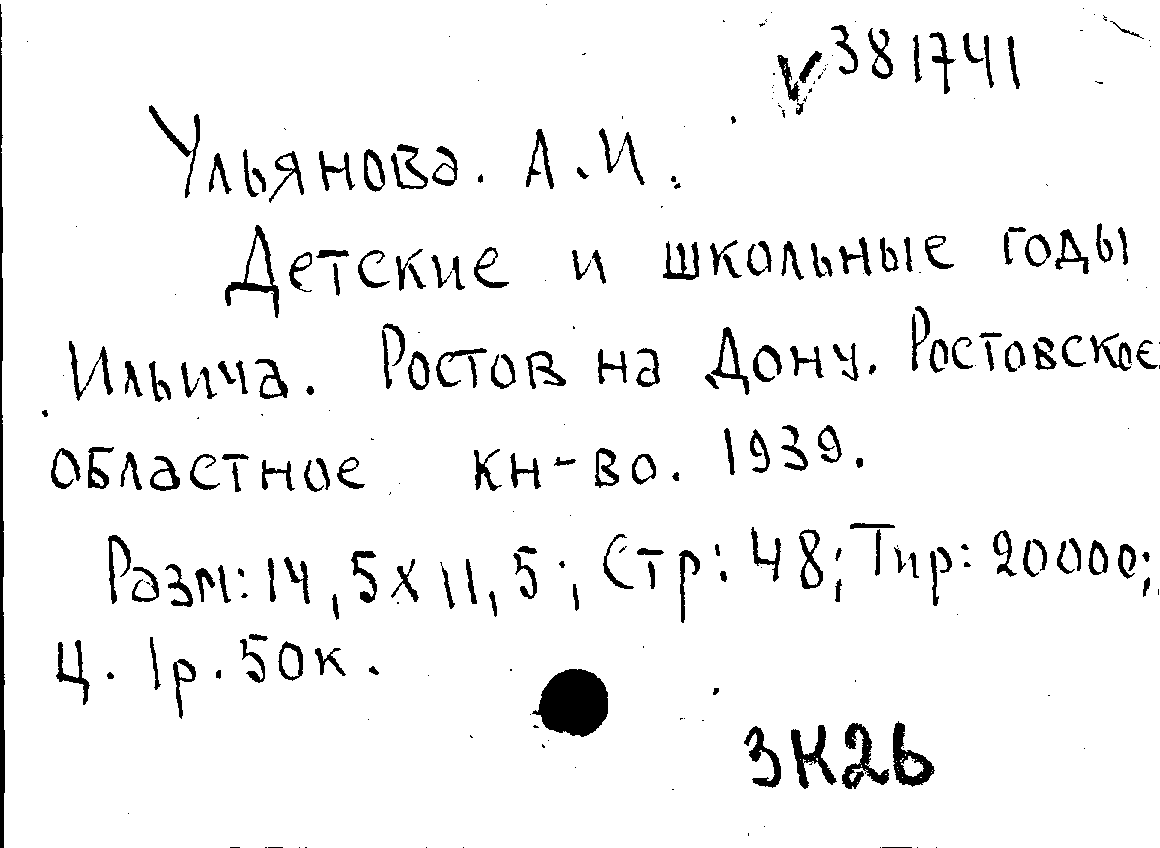 V 381741
Ульянова. А.И.
Детские и школьные годы
Ильича. Ростов на Дону. Ростовское
областное кн-во. 1939.
Разм: 14,5х11,5; Стр: 48; Тир: 20000;
Ц. 1р. 50к.
3К26